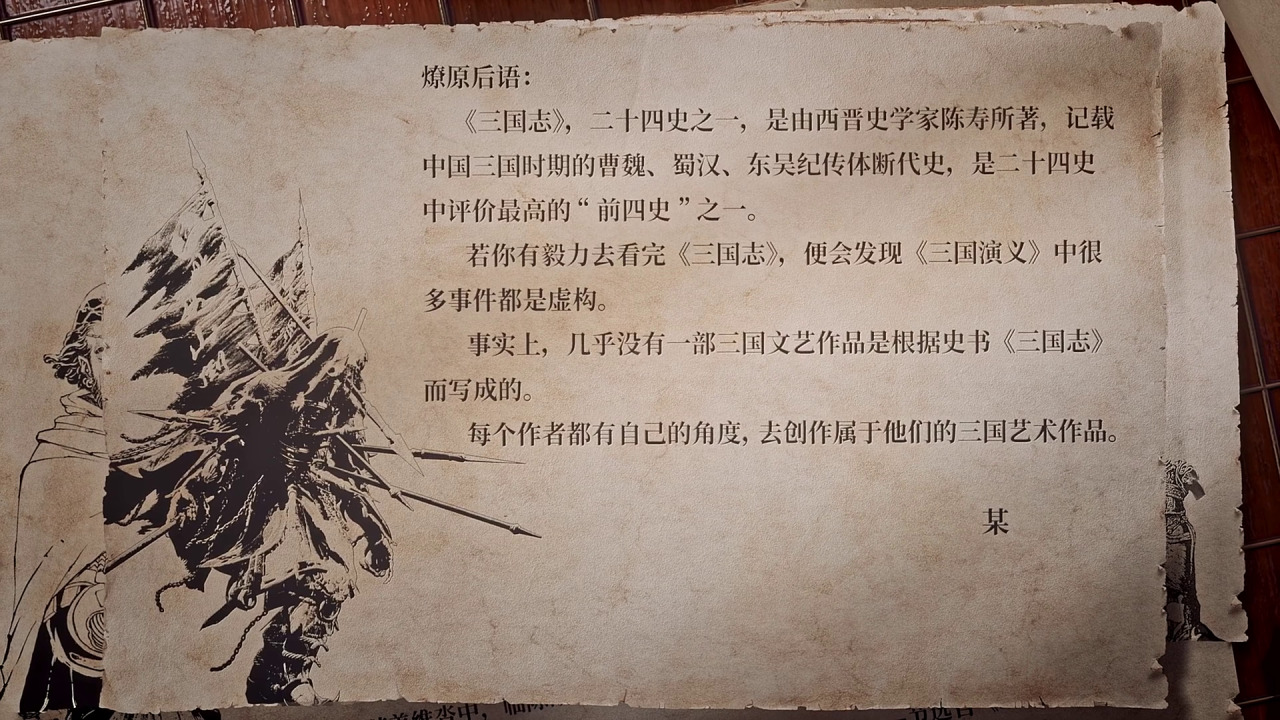 燎原后语：
《三国志》，二十四史之一，是由西晋史学家陈寿所著，记载
中国三国时期的曹魏、蜀汉、东吴纪传体断代史，是二十四史
中评价最高的“前四史”之一。
若你有毅力去看完《三国志》，便会发现《三国演义》中很
多事件都是虚构。
事实上，几乎没有一部三国文艺作品是根据史书《三国志》
而写成的。
每个作者都有自己的角度，去创作属于他们的三国艺术作品。
某